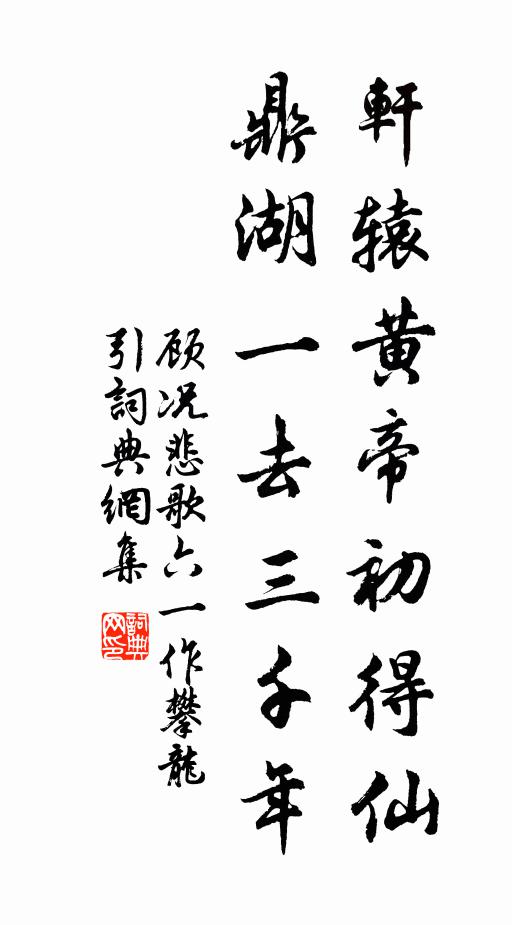 軒辕黄帝初得仙
鼎湖一去三千年
顾况悲歌六一作攀龍
引詞典網集
詞典
网印